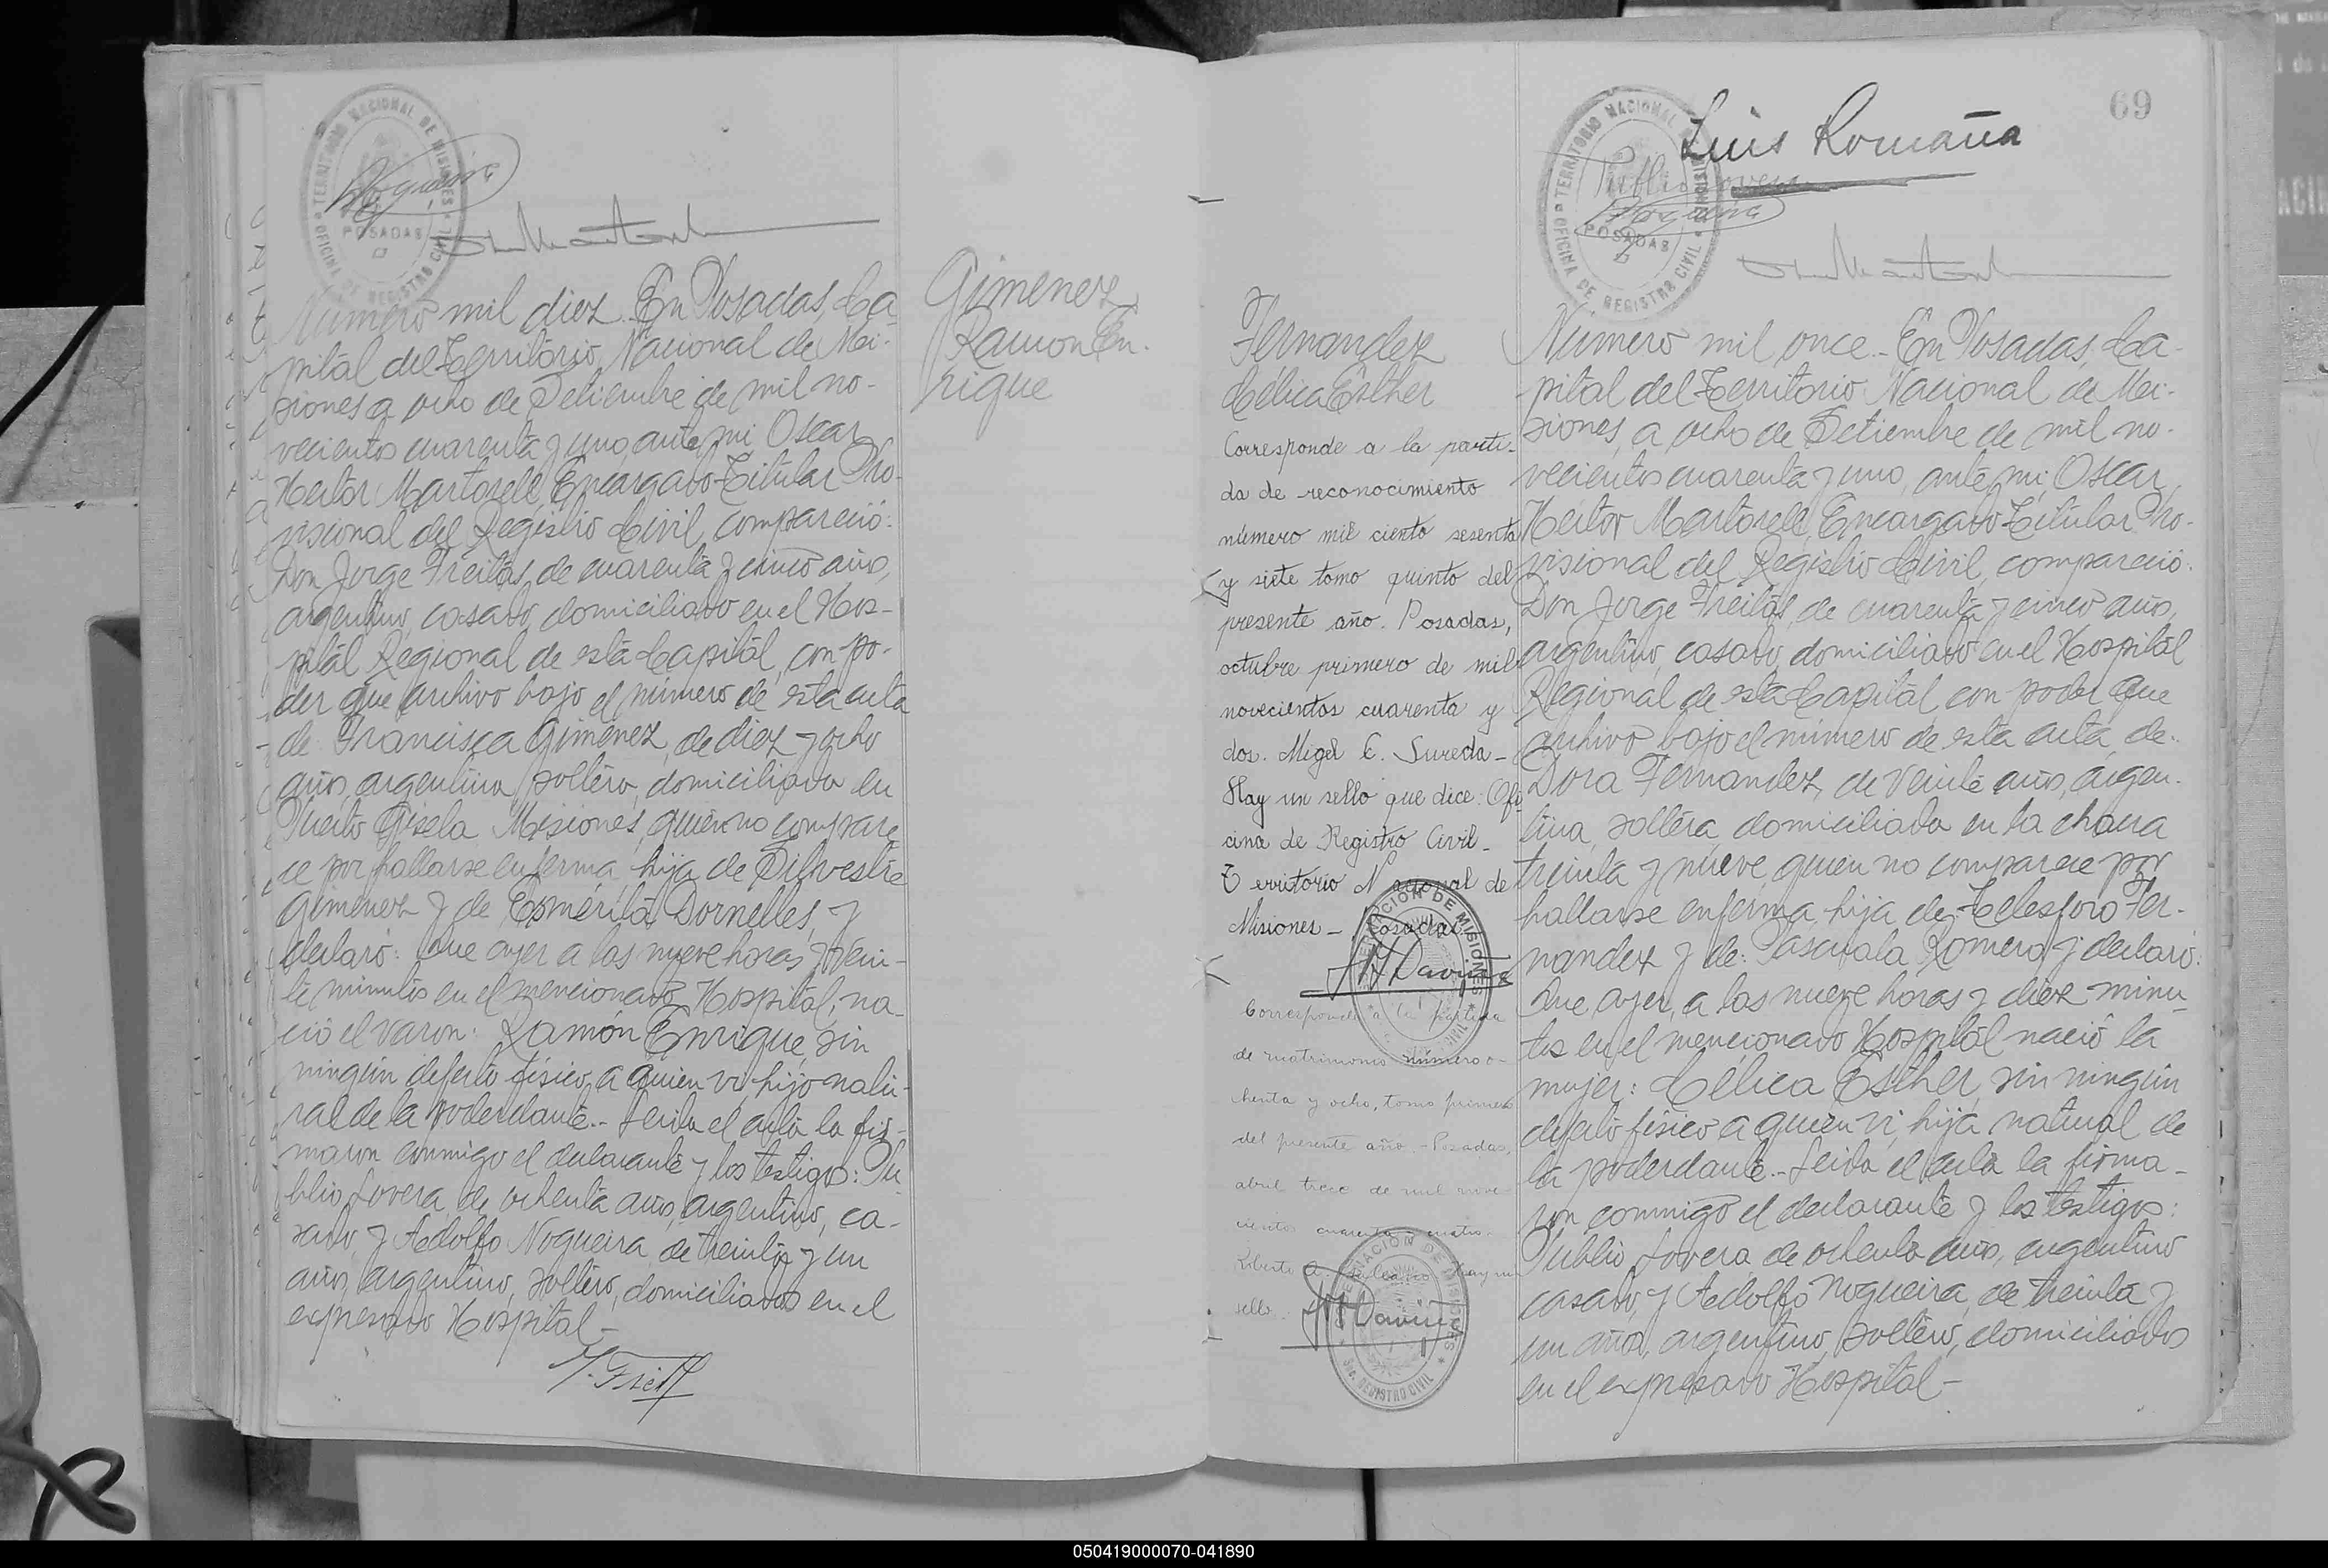 TERRITORIO NACIONAL DE MISIONES
OFICINA DE REGISTRO CIVIL
POSADAS
Nogueira
Número mil diez. En Posadas, Ca-
pital del Territorio Nacional de Mi-
siones a ocho de Setiembre de mil no-
vecientos cuarenta y uno, ante mi Oscar
Hector Martorell, Encargado Titular Pro-
visional del Registro Civil, compareció:
Don Jorge Freitas, de cuarenta y cinco años,
argentino, casado, domiciliado en el Hos-
pital Regional de esta Capital, con po-
der que archivo bajo el número de esta acta
de: Francisca Gimenez, de diez y ocho
años, argentina, soltera, domiciliada en
Puerto Gisela Misiones, quien no compare
ce por hallarse enferma, hija de Silvestre
Gimenez y de Esmérila Dornelles, y
declaró: Que ayer a las nueve horas y vein-
te minutos en el mencionado Hospital, na-
ció el varon: Ramón Enrique, sin
ningún defecto físico, a quien vi, hijo natu-
ral de la poderdante.- Leida el acta la fir-
maron conmigo el declarante y los testigos: Pu
blio Lovera, de ochenta años, argentino, ca-
sado, y Adolfo Nogueira, de treinta y un
años, argentino, soltero, domiciliados en el
expresado Hospital-
J. Freit
Gimenez
Ramon En-
rique
69
Luis Romaña
TERRITORIO NACIONAL DE MISIONES
OFICINA DE REGISTRO CIVIL
Publio Lovera
Nogueira
POSADAS
Fernandez
Célica Esther
Corresponde a la parti-
da de reconocimiento
número mil ciento sesenta
y siete tomo quinto del
presente año. Posadas,
octubre primero de mil
novecientos cuarenta y
dos. Migel C. Sureda-
Hay un sello que dice: Ofi
cina de Registro Civil-
Territorio Nacional de
Misiones - Posadas
GOBERNACIÓN DE MISIONES
Corresponde a la partida
de matrimonio número o-
chenta y ocho, tomo primero
del presente año.- Posadas,
abril trece de mil nove-
cientos cuarenta y cuatro.-
Roberto A. hay un
sello.
GOBERNACIÓN DE MISIONES
Sec. REGISTRO CIVIL
Número mil once.- En Posadas, Ca-
pital del Territorio Nacional de Mi-
siones, a ocho de Setiembre de mil no-
vecientos cuarenta y uno, ante mi, Oscar
Hector Martorell, Encargado Titular Pro-
visional del Registro Civil, compareció:
Don Jorge Freitas, de cuarenta y cinco años,
argentino, casado, domiciliado en el Hospital
Regional de esta Capital con poder que
archivo bajo el número de esta acta, de:
Dora Fernandez, de veinte años, argen-
tina, soltera, domiciliada en la chacra
treinta y nueve, quien no comparece por
hallarse enferma, hija de: Telesforo Fer-
nandez y de: Pascuala Romero y declaró:
Que ayer, a las nueve horas y diez minu-
tos en el mencionado Hospital nació la
mujer: Célica Esther, sin ningún
defecto físico a quien vi, hija natural de
la poderdante.- Leida el acta la firma-
ron conmigo el declarante y los testigos:
Publio Lovera de ochenta años, argentino
casado, y Adolfo Nogueira, de treinta y
un años, argentino, soltero, domiciliados
en el expresado Hospital-
050419000070-041890